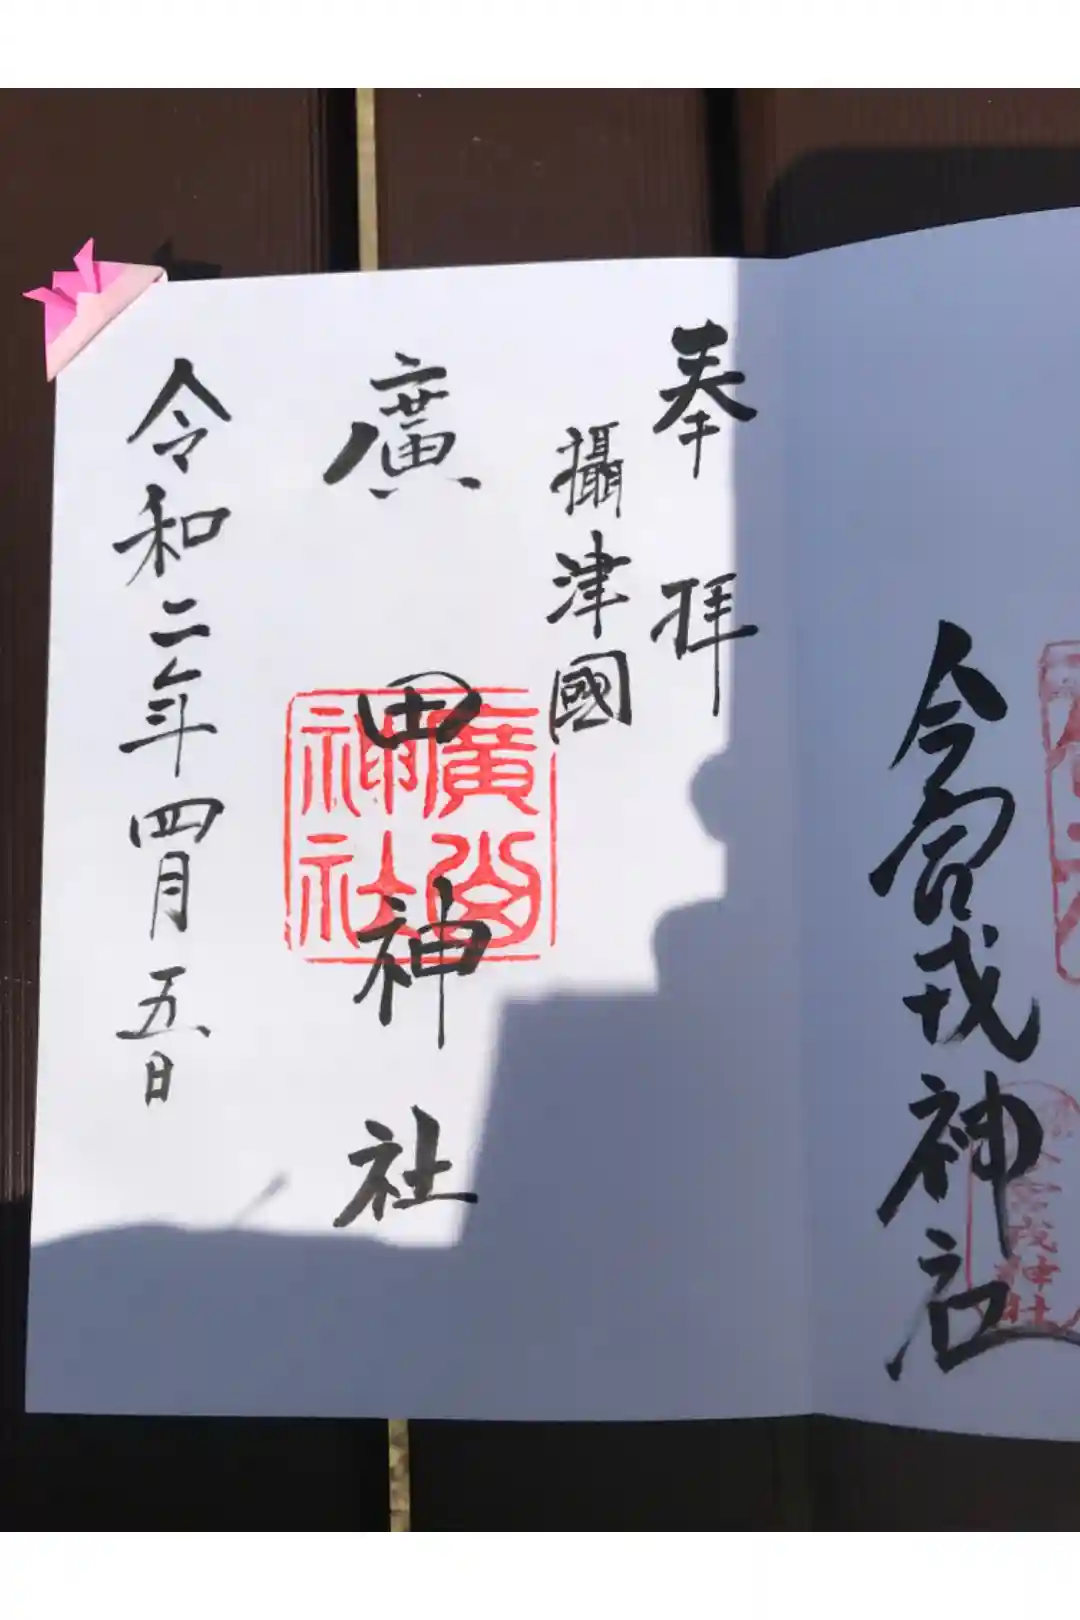 今宮戎神社
宮戎神社
奉拝
攝津國
廣田神社
廣
神社
令和二年四月五日